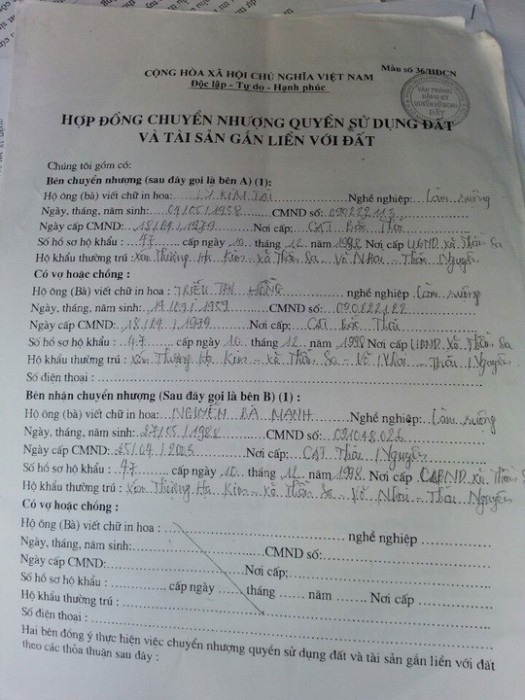 Mẫu số 36/HĐCN
CỘNG HÒA XÃ HỘI CHỦ NGHĨA VIỆT NAM
Độc lập - Tự do - Hạnh phúc
VĂN PHÒNG
ĐĂNG KÝ
QUYỀN SỬ DỤNG
ĐẤT
HỢP ĐỒNG CHUYỂN NHƯỢNG QUYỀN SỬ DỤNG ĐẤT
VÀ TÀI SẢN GẮN LIỀN VỚI ĐẤT
Chúng tôi gồm có:
Bên chuyển nhượng (sau đây gọi là bên A) (1):
Hộ ông (bà) viết chữ in hoa: KIM Nghề nghiệp: Làm ruộng
Ngày, tháng, năm sinh: CMND số:
Ngày cấp CMND: 18/09/1979 Nơi cấp: CAT Bắc Thái
Số hồ sơ hộ khẩu: 47 cấp ngày 10 tháng 12 năm 1998 Nơi cấp UBND xã Thần Sa
Hộ khẩu thường trú: Xóm Thượng Hạ Kim xã Thần Sa Võ Nhai Thái Nguyên
Có vợ hoặc chồng:
Hộ ông (Bà) viết chữ in hoa: TRIỆU THỊ nghề nghiệp Làm ruộng
Ngày, tháng, năm sinh: CMND số:
Ngày cấp CMND: 18/09/1979 Nơi cấp: CAT Bắc Thái
Số hồ sơ hộ khẩu: 47 cấp ngày 10 tháng 12 năm 1998 Nơi cấp UBND xã Thần Sa
Hộ khẩu thường trú: Xóm Thượng Hạ Kim xã Thần Sa Võ Nhai Thái Nguyên
Số điện thoại:
Bên nhận chuyển nhượng (Sau đây gọi là bên B) (1) :
Hộ ông (bà) viết chữ in hoa: NGUYỄN BÁ MẠNH Nghề nghiệp: Làm ruộng
Ngày, tháng, năm sinh: 27/05/1988 CMND số: 091018026
Ngày cấp CMND: 25/04/2005 Nơi cấp: CAT Thái Nguyên
Số hồ sơ hộ khẩu: 47 cấp ngày 10 tháng 12 năm 1998 Nơi cấp UBND xã Thần S
Hộ khẩu thường trú : Xóm Thượng Hạ Kim xã Thần Sa Võ Nhai Thái Nguyên
Có vợ hoặc chồng :
Hộ ông (Bà) viết chữ in hoa : nghề nghiệp
Ngày, tháng, năm sinh: CMND số:
Ngày cấp CMND: Nơi cấp:
Số hồ sơ hộ khẩu : cấp ngày tháng năm Nơi cấp
Hộ khẩu thường trú :
Số điện thoại :
Hai bên đồng ý thực hiện việc chuyển nhượng quyền sử dụng đất và tài sản gắn liền với đất
theo các thỏa thuận sau đây :